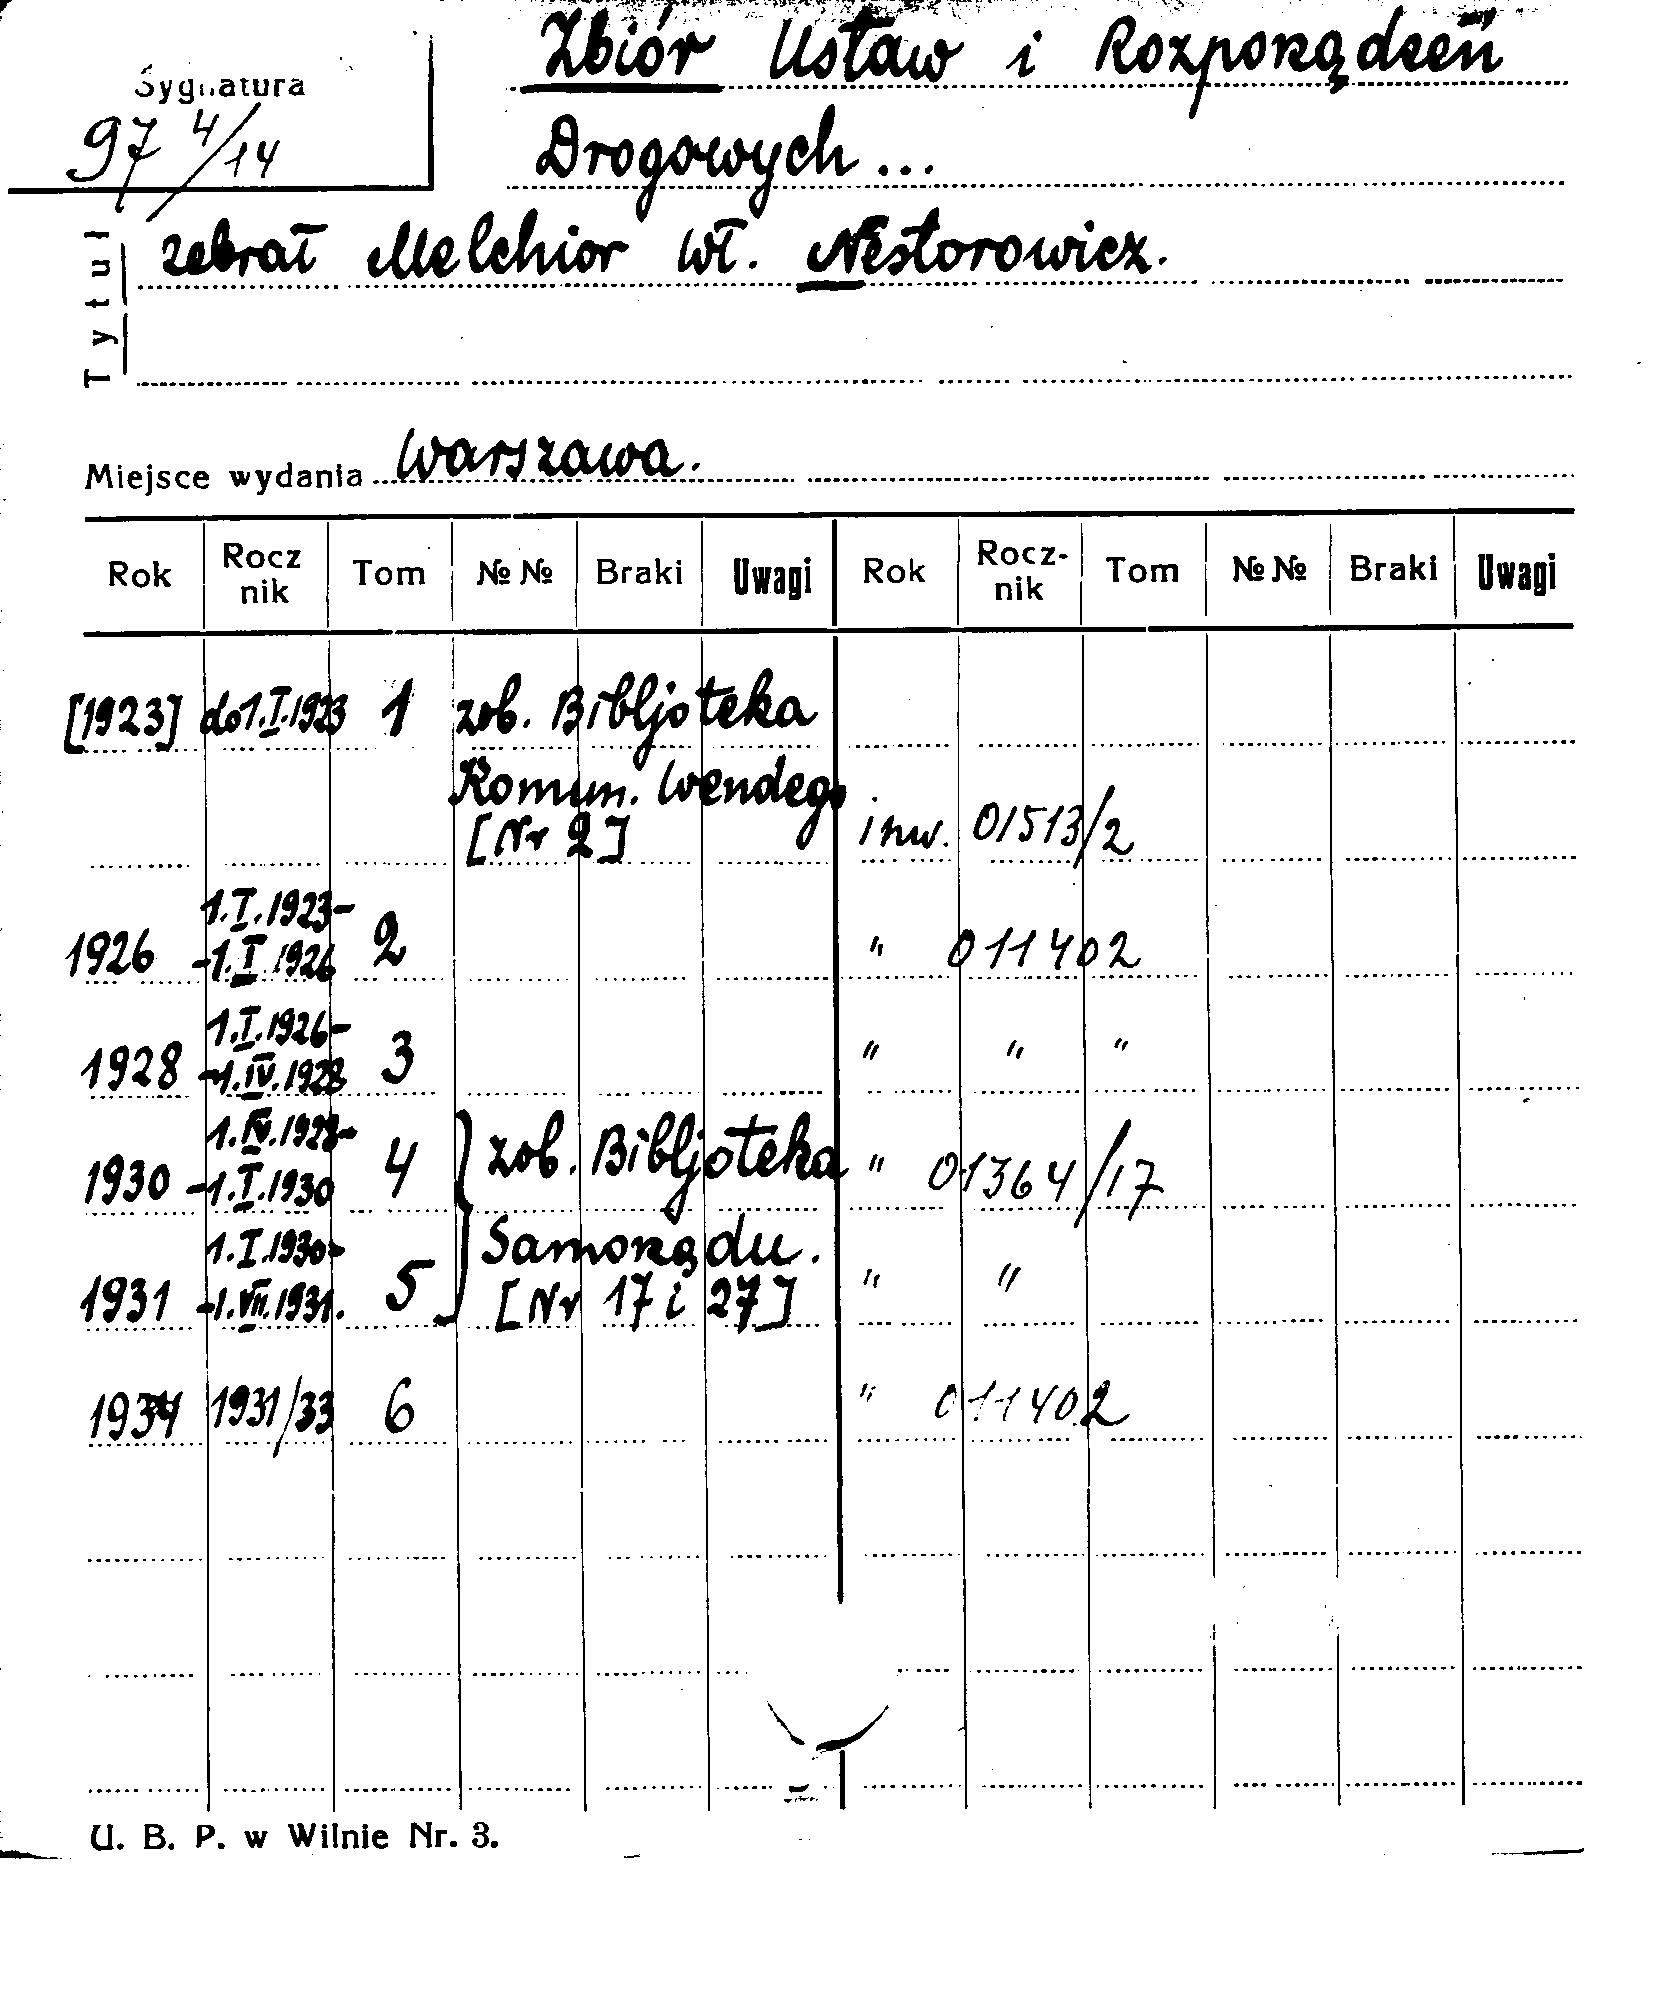 Sygnatura
97 4/14
Zbiór Ustaw i Rozporządzeń
Drogowych...
Tytuł
zebrał Melchior Wł. Nestorowicz.
Miejsce wydania Warszawa.
Rok Rocz nik Tom №№ Braki Uwagi Rok Rocz- nik Tom №№ Braki Uwagi
[1923] do 1.I.1923 1 zob. Bibljoteka
Komun. Wendego
[Nr 2] inw. 01513/2
1.I.1923-
1926 -1.I.1926 2 " 011402
1.I.1926-
1928 -1.IV.1928 3 " " "
1.IV.1928-
1930 -1.I.1930 4 zob. Bibljoteka " 01364/17
1.I.1930- Samorządu.
1931 -1.VII.1931. 5 [Nr 17 i 27] " "
1934 1931/33 6 " 011402
U. B. P. w Wilnie Nr. 3.